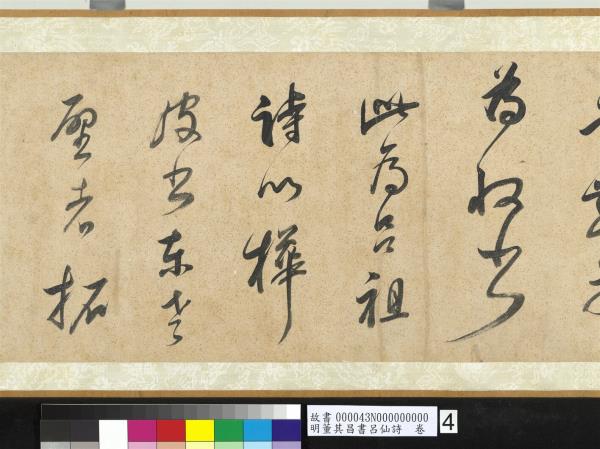 為收書
此為呂祖
詩以樺
皮書東老
壁者拓
故書 000043N000000000
明董其昌書呂仙詩 卷
4